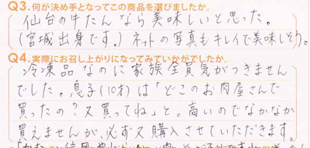 Q3.何が決め手となってこの商品を選びましたか。
仙台の牛たんなら美味しいと思った。
(宮城出身です。)ネットの写真もキレイで美味しそう。
Q4.実際にお召し上がりになってみていかがでしたか。
冷凍品なのに家族全員気がつきません
でした。息子(10才)は「どこのお肉屋さんで
買ったの?又買ってね」と。高いのでなかなか
買えませんが、必ず又購入させていただきます。